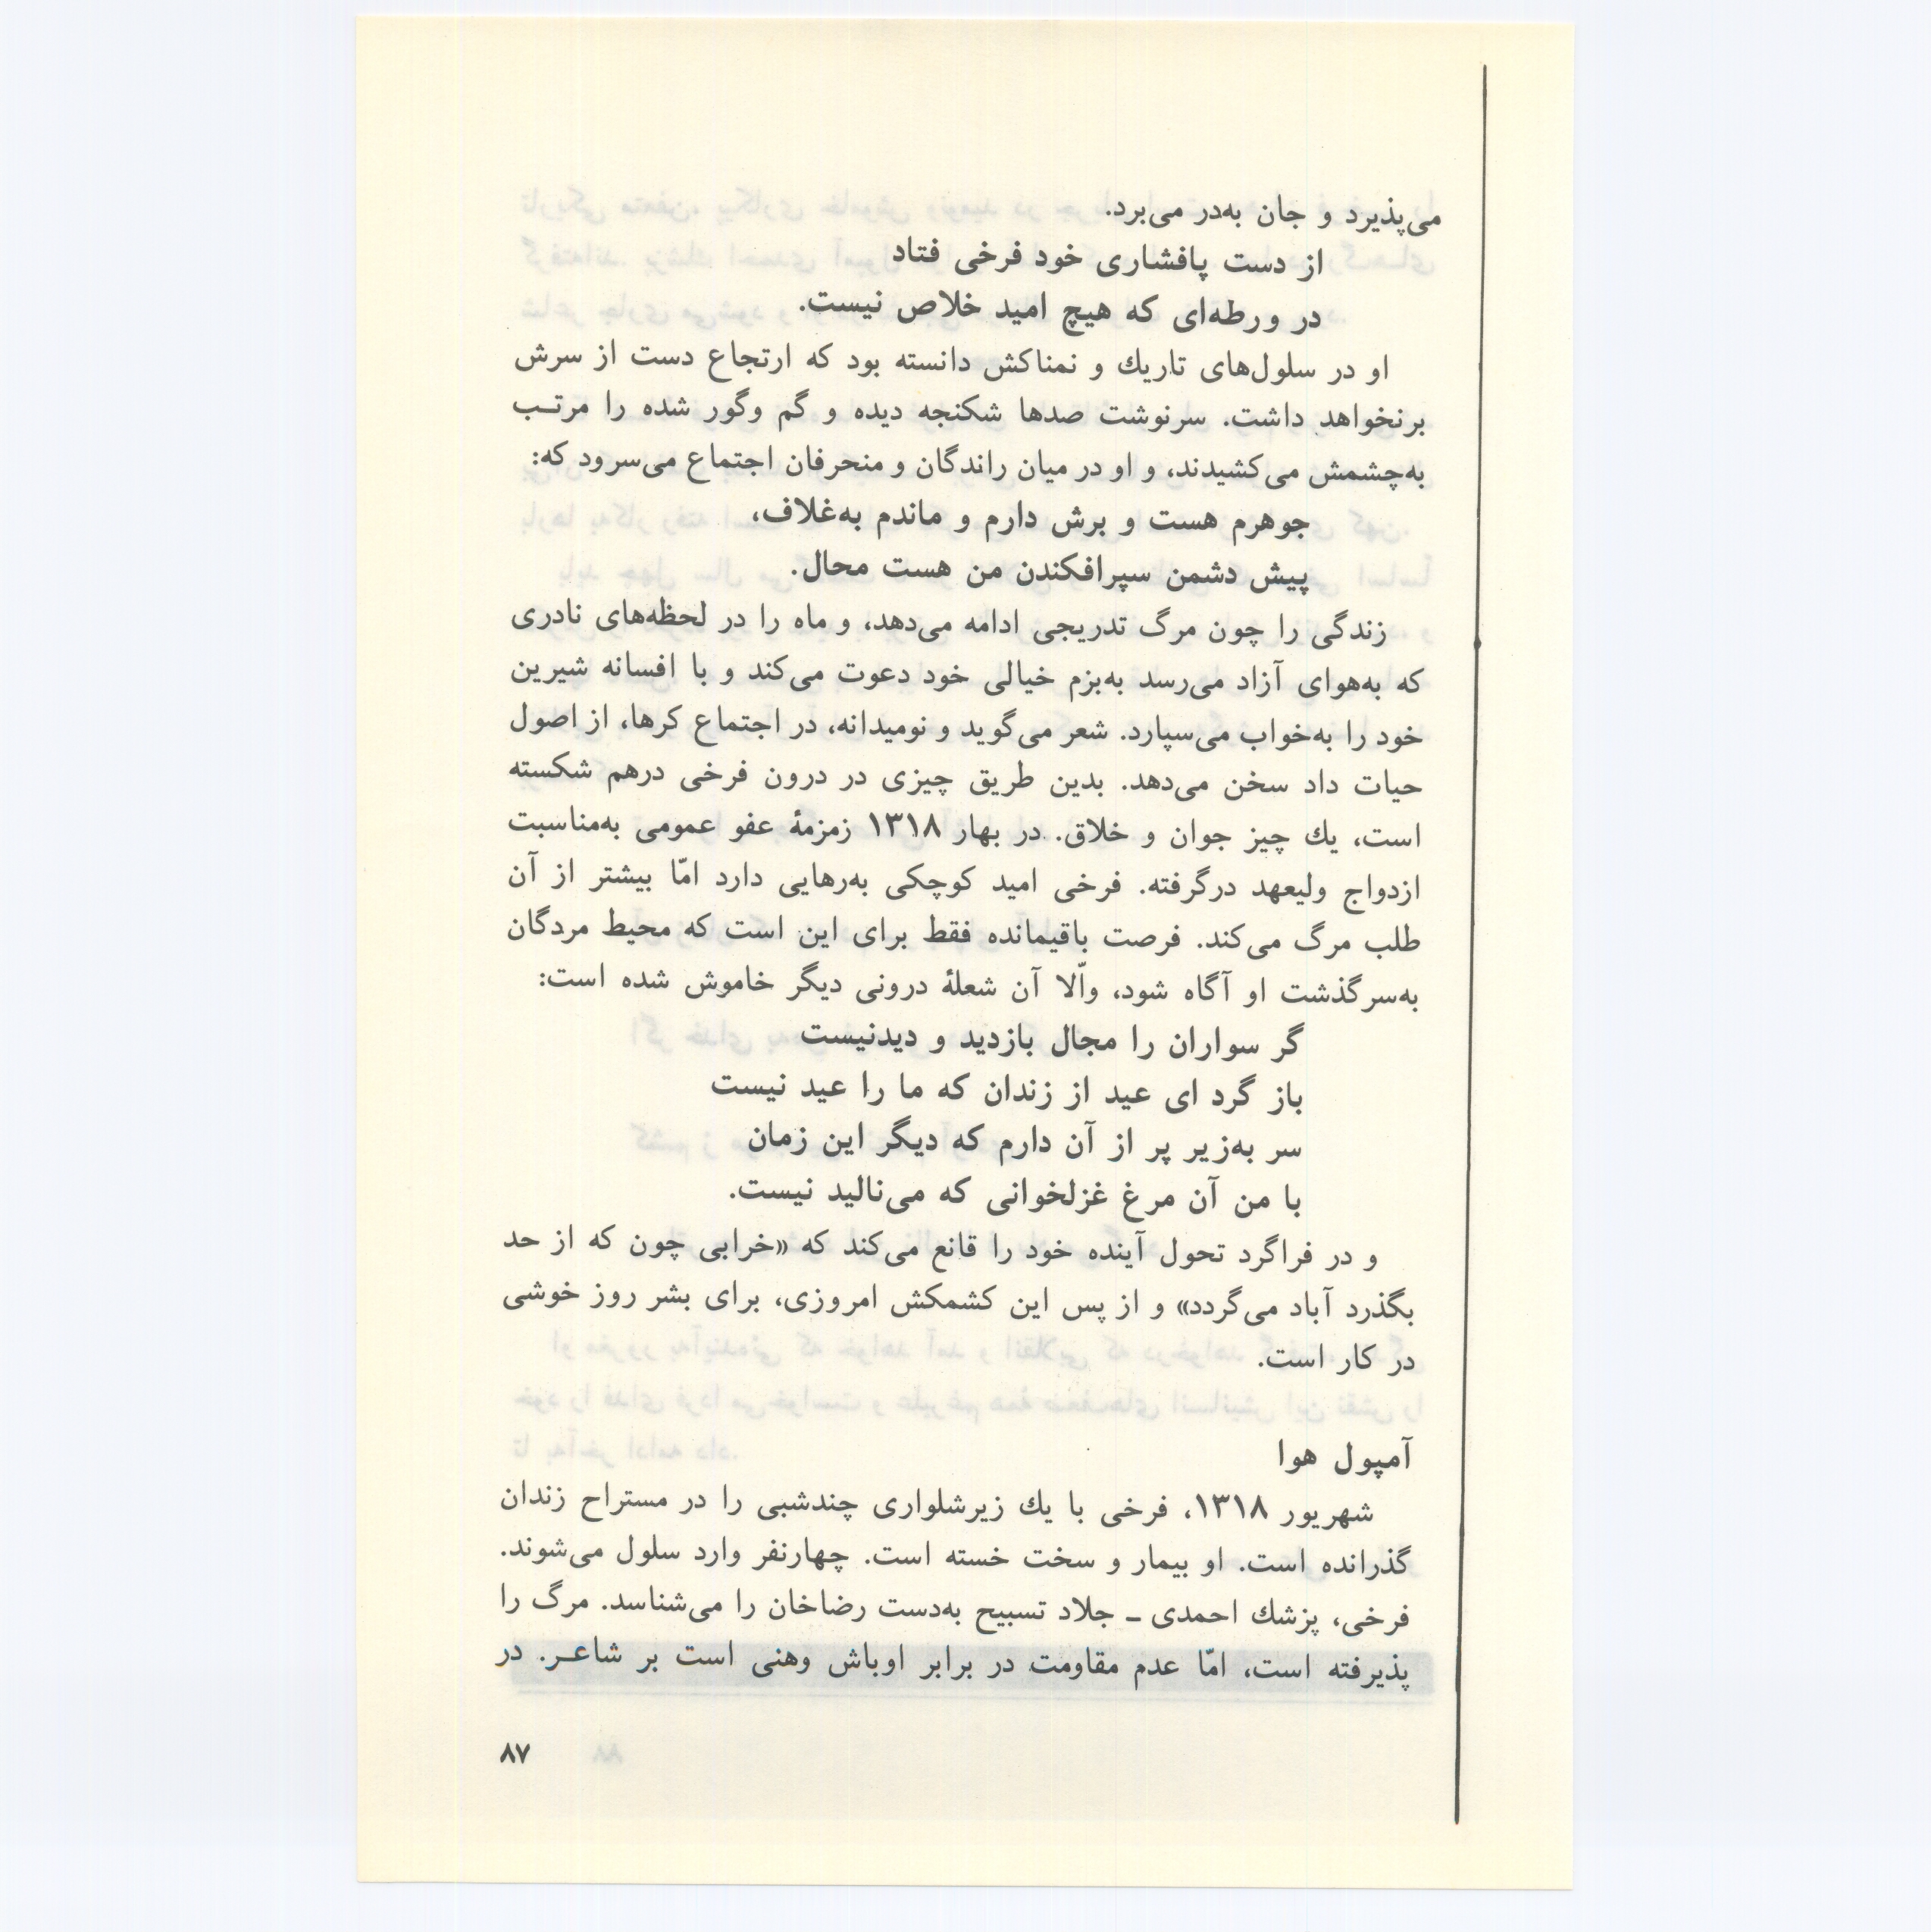 می‌پذیرد و جان به‌در می‌برد.
از دست پافشاری خود فرخی فتاد
در ورطه‌ای که هیچ امید خلاص نیست.
او در سلول‌های تاریك و نمناکش دانسته بود که ارتجاع دست از سرش
برنخواهد داشت. سرنوشت صدها شکنجه دیده و گم وگور شده را مرتـب
به‌چشمش می‌کشیدند، و او در میان راندگان و منحرفان اجتماع می‌سرود که:
جوهرم هست و برش دارم و ماندم به‌غلاف،
پیش دشمن سپرافکندن من هست محال.
زندگی را چون مرگ تدریجی ادامه می‌دهد، و ماه را در لحظه‌های نادری
که به‌هوای آزاد می‌رسد به‌بزم خیالی خود دعوت می‌کند و با افسانه شیرین
خود را به‌خواب می‌سپارد. شعر می‌گوید و نومیدانه، در اجتماع کرها، از اصول
حیات داد سخن می‌دهد. بدین طریق چیزی در درون فرخی درهم شکسته
است، یك چیز جوان و خلاق. در بهار ۱۳۱۸ زمزمهٔ عفو عمومی به‌مناسبت
ازدواج ولیعهد درگرفته. فرخی امید کوچکی به‌رهایی دارد امّا بیشتر از آن
طلب مرگ می‌کند. فرصت باقیمانده فقط برای این است که محیط مردگان
به‌سرگذشت او آگاه شود، والّا آن شعلهٔ درونی دیگر خاموش شده است:
گر سواران را مجال بازدید و دیدنیست
باز گرد ای عید از زندان که ما را عید نیست
سر به‌زیر پر از آن دارم که دیگر این زمان
با من آن مرغ غزلخوانی که می‌نالید نیست.
و در فراگرد تحول آینده خود را قانع می‌کند که «خرابی چون که از حد
بگذرد آباد می‌گردد» و از پس این کشمکش امروزی، برای بشر روز خوشی
در کار است.
آمپول هوا
شهریور ۱۳۱۸، فرخی با یك زیرشلواری چندشبی را در مستراح زندان
گذرانده است. او بیمار و سخت خسته است. چهارنفر وارد سلول می‌شوند.
فرخی، پزشك احمدی ـ جلاد تسبیح به‌دست رضاخان را می‌شناسد. مرگ را
پذیرفته است، امّا عدم مقاومت در برابر اوباش وهنی است بر شاعـر. در
۸۷